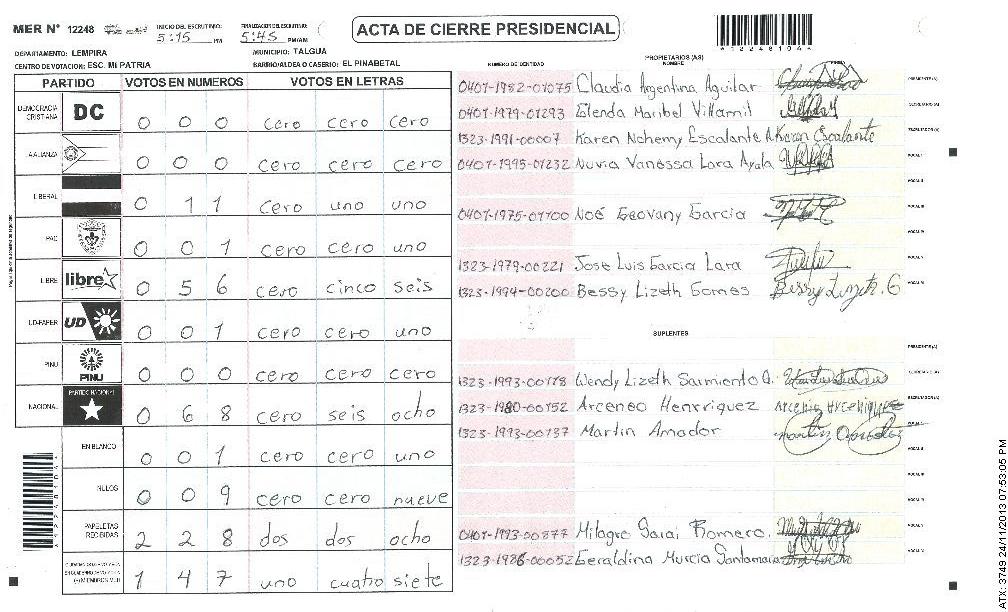 MER Nº 12248
INICIO DEL ESCRUTINIO: 5:15 PM
FINALIZACION DEL ESCRUTINIO: 5:45 PM/AM
ACTA DE CIERRE PRESIDENCIAL
DEPARTAMENTO: LEMPIRA
MUNICIPIO: TALGUA
CENTRO DE VOTACION: ESC. MI PATRIA
BARRIO/ALDEA O CASERIO: EL PINABETAL
PARTIDO VOTOS EN NUMEROS VOTOS EN LETRAS
DEMOCRACIA CRISTIANA DC 0 0 0 cero cero cero
ALIANZA 0 0 0 cero cero cero
LIBERAL 0 1 1 cero uno uno
PAC 0 0 1 cero cero uno
LIBRE libre 0 5 6 cero cinco seis
UD-FAPER UD 0 0 1 cero cero uno
PINU PINU 0 0 0 cero cero cero
NACIONAL PARTIDO NACIONAL 0 6 8 cero seis ocho
EN BLANCO 0 0 1 cero cero uno
NULOS 0 0 9 cero cero nueve
PAPELETAS RECIBIDAS 2 2 8 dos dos ocho
1 4 7 uno cuatro siete
PROPIETARIOS (AS)
NUMERO DE IDENTIDAD NOMBRE FIRMA
0401-1982-01075 Claudia Argentina Aguilar PRESIDENTE (A)
0401-1979-01293 Elenda Maribel Villamil SECRETARIO (A)
1323-1991-00007 Karen Nohemy Escalante A Karen Escalante ESCRUTADOR (A)
0401-1995-01232 Nuvia Vanessa Lara Ayala VOCAL I
VOCAL II
0401-1975-01700 Noé Geovany Garcia VOCAL III
VOCAL IV
1323-1979-00221 Jose Luis Garcia Lara VOCAL V
1323-1994-00200 Bessy Lizeth Gomes Bessy Lizeth. G VOCAL VI
SUPLENTES
PRESIDENTE (A)
1323-1993-00178 Wendy Lizeth Sarmiento SECRETARIO (A)
1323-1980-00152 Arceneo Henrriquez ESCRUTADOR (A)
1323-1993-00137 Martin Amador VOCAL I
VOCAL II
VOCAL III
VOCAL IV
0401-1993-00877 Milagro Sarai Romero. VOCAL V
1323-1986-00052 Geraldina Murcia Santamaria VOCAL VI
ATX: 3749 24/11/2013 07:53:05 PM